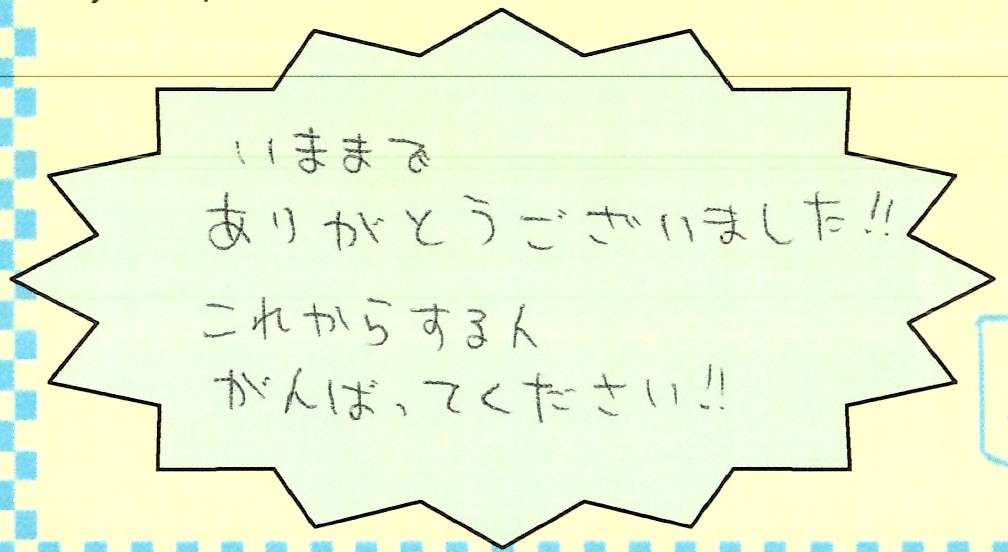 いままで
ありがとうございました!!
これからする人
がんばってください!!